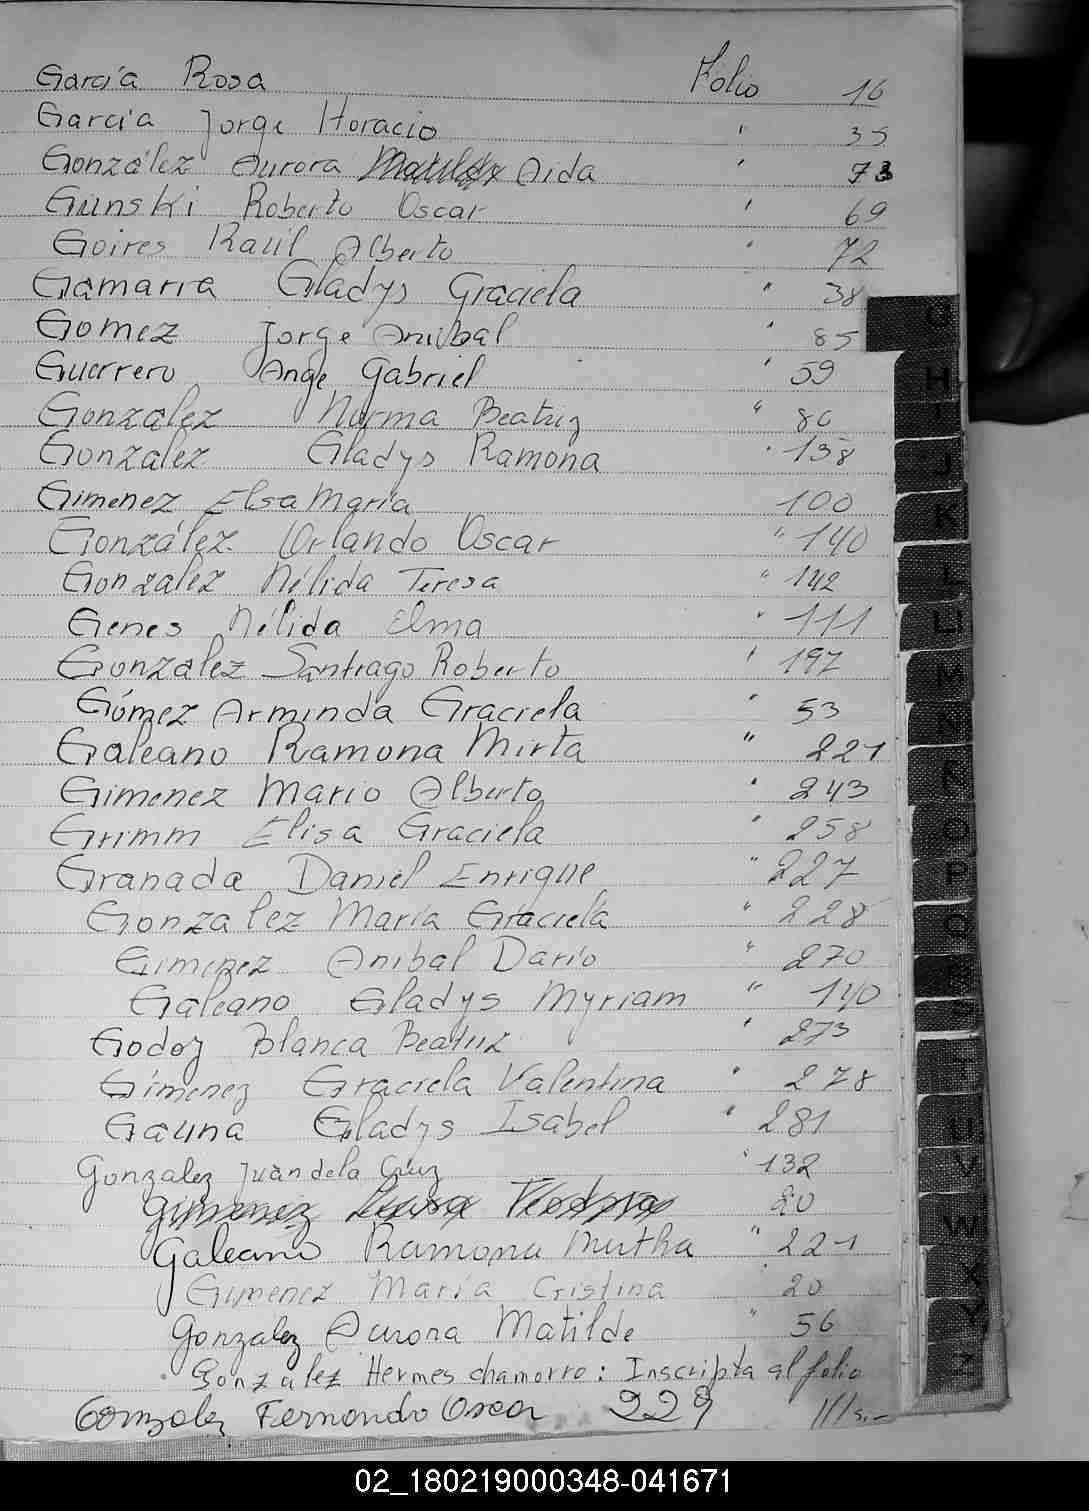 García Rosa Folio 16
García Jorge Horacio " 35
González Aurora Aida " 73
Gunski Roberto Oscar " 69
Goires Raúl Alberto " 72
Gamarra Gladys Graciela " 38
Gomez Jorge Anibal " 85
Guerrero Ange Gabriel " 59
Gonzalez Norma Beatriz " 80
Gonzalez Gladys Ramona " 138
Gimenez Elsa María 100
González Orlando Oscar " 140
Gonzalez Nélida Teresa " 142
Genes Nélida Elma " 111
Gonzalez Santiago Roberto " 197
Gómez Arminda Graciela " 53
Galeano Ramona Mirta " 221
Gimenez Mario Alberto " 243
Grimm Elisa Graciela " 258
Granada Daniel Enrique " 227
Gonzalez María Graciela " 228
Gimenez Anibal Darío " 270
Galeano Gladys Myriam " 140
Godoy Blanca Beatriz " 273
Gimenez Graciela Valentina " 278
Gauna Gladys Isabel " 281
Gonzalez Juan de la Cruz " 132
Gimenez 20
Galeano Ramona Mirtha " 221
Gimenez María Cristina 20
Gonzalez Aurora Matilde " 56
Gonzalez Hermes chamorro: Inscripta al folio
Gonzalez Fernando Oscar 229
G
H
I
J
K
L
Ll
M
N
Ñ
O
P
Q
R
S
T
U
V
W
X
Y
Z
02_180219000348-041671